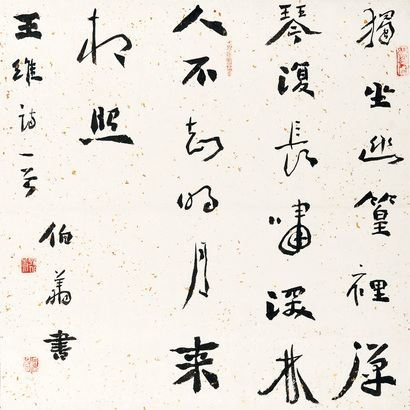 獨坐幽篁裡彈
琴復長嘯深林
人不知明月來
相照
王維詩一首
伯 書